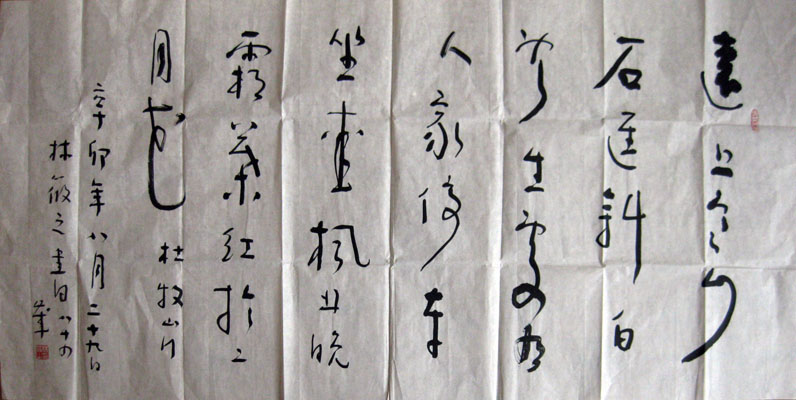 遠上寒山
石徑斜白
雲生處有
人家停車
坐愛楓林晚
霜葉紅於二
月花 杜牧山行
辛卯年八月二十九日
林筱之書 八十四
歲